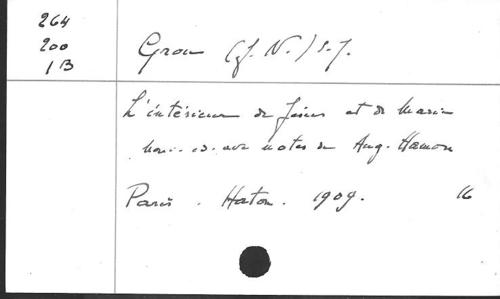 264
200
1B
Grou (J. N.) s. J.
L'intérieur de Jésus et de Marie
Nouv. éd. avec notes de Aug. Hamon
Paris. Haton. 1909. 16